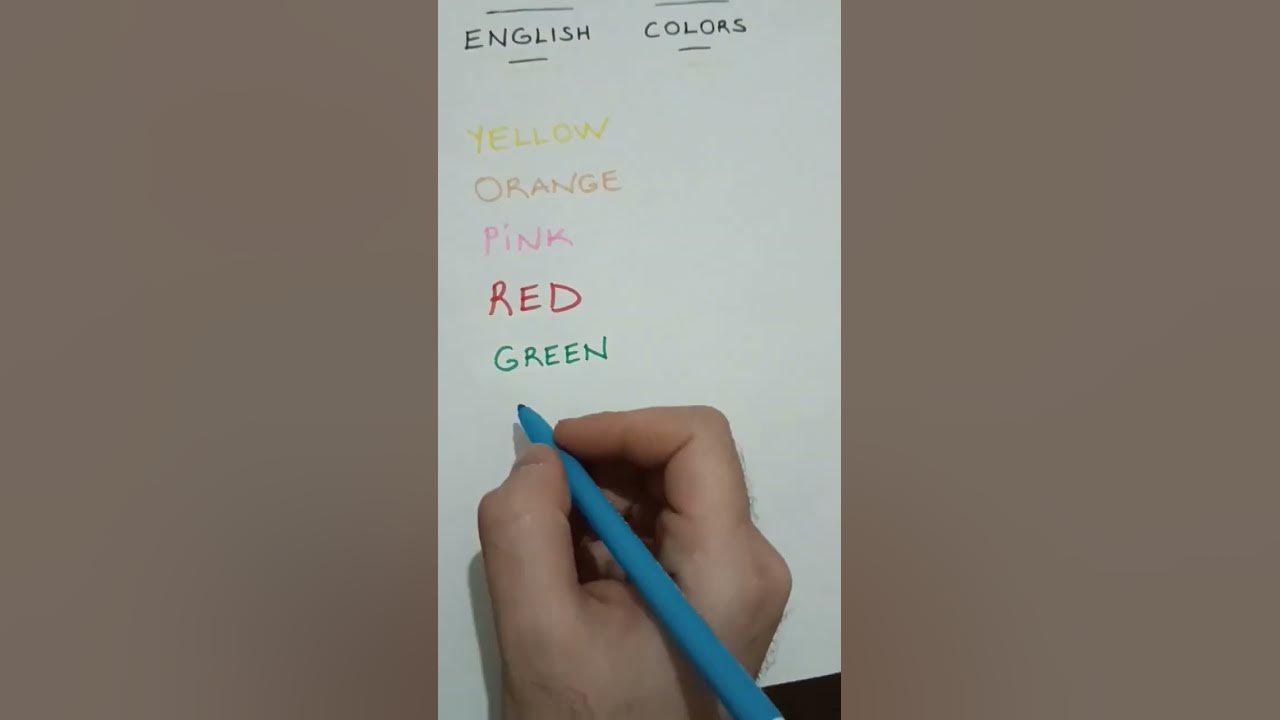 ENGLISH COLORS
YELLOW
ORANGE
PiNK
RED
GREEN